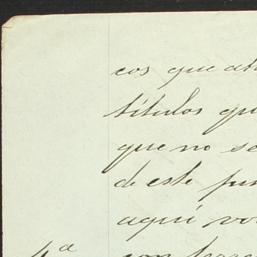 cos que at
titulos qu
que no se
de este pun
aquí vo
4ª con